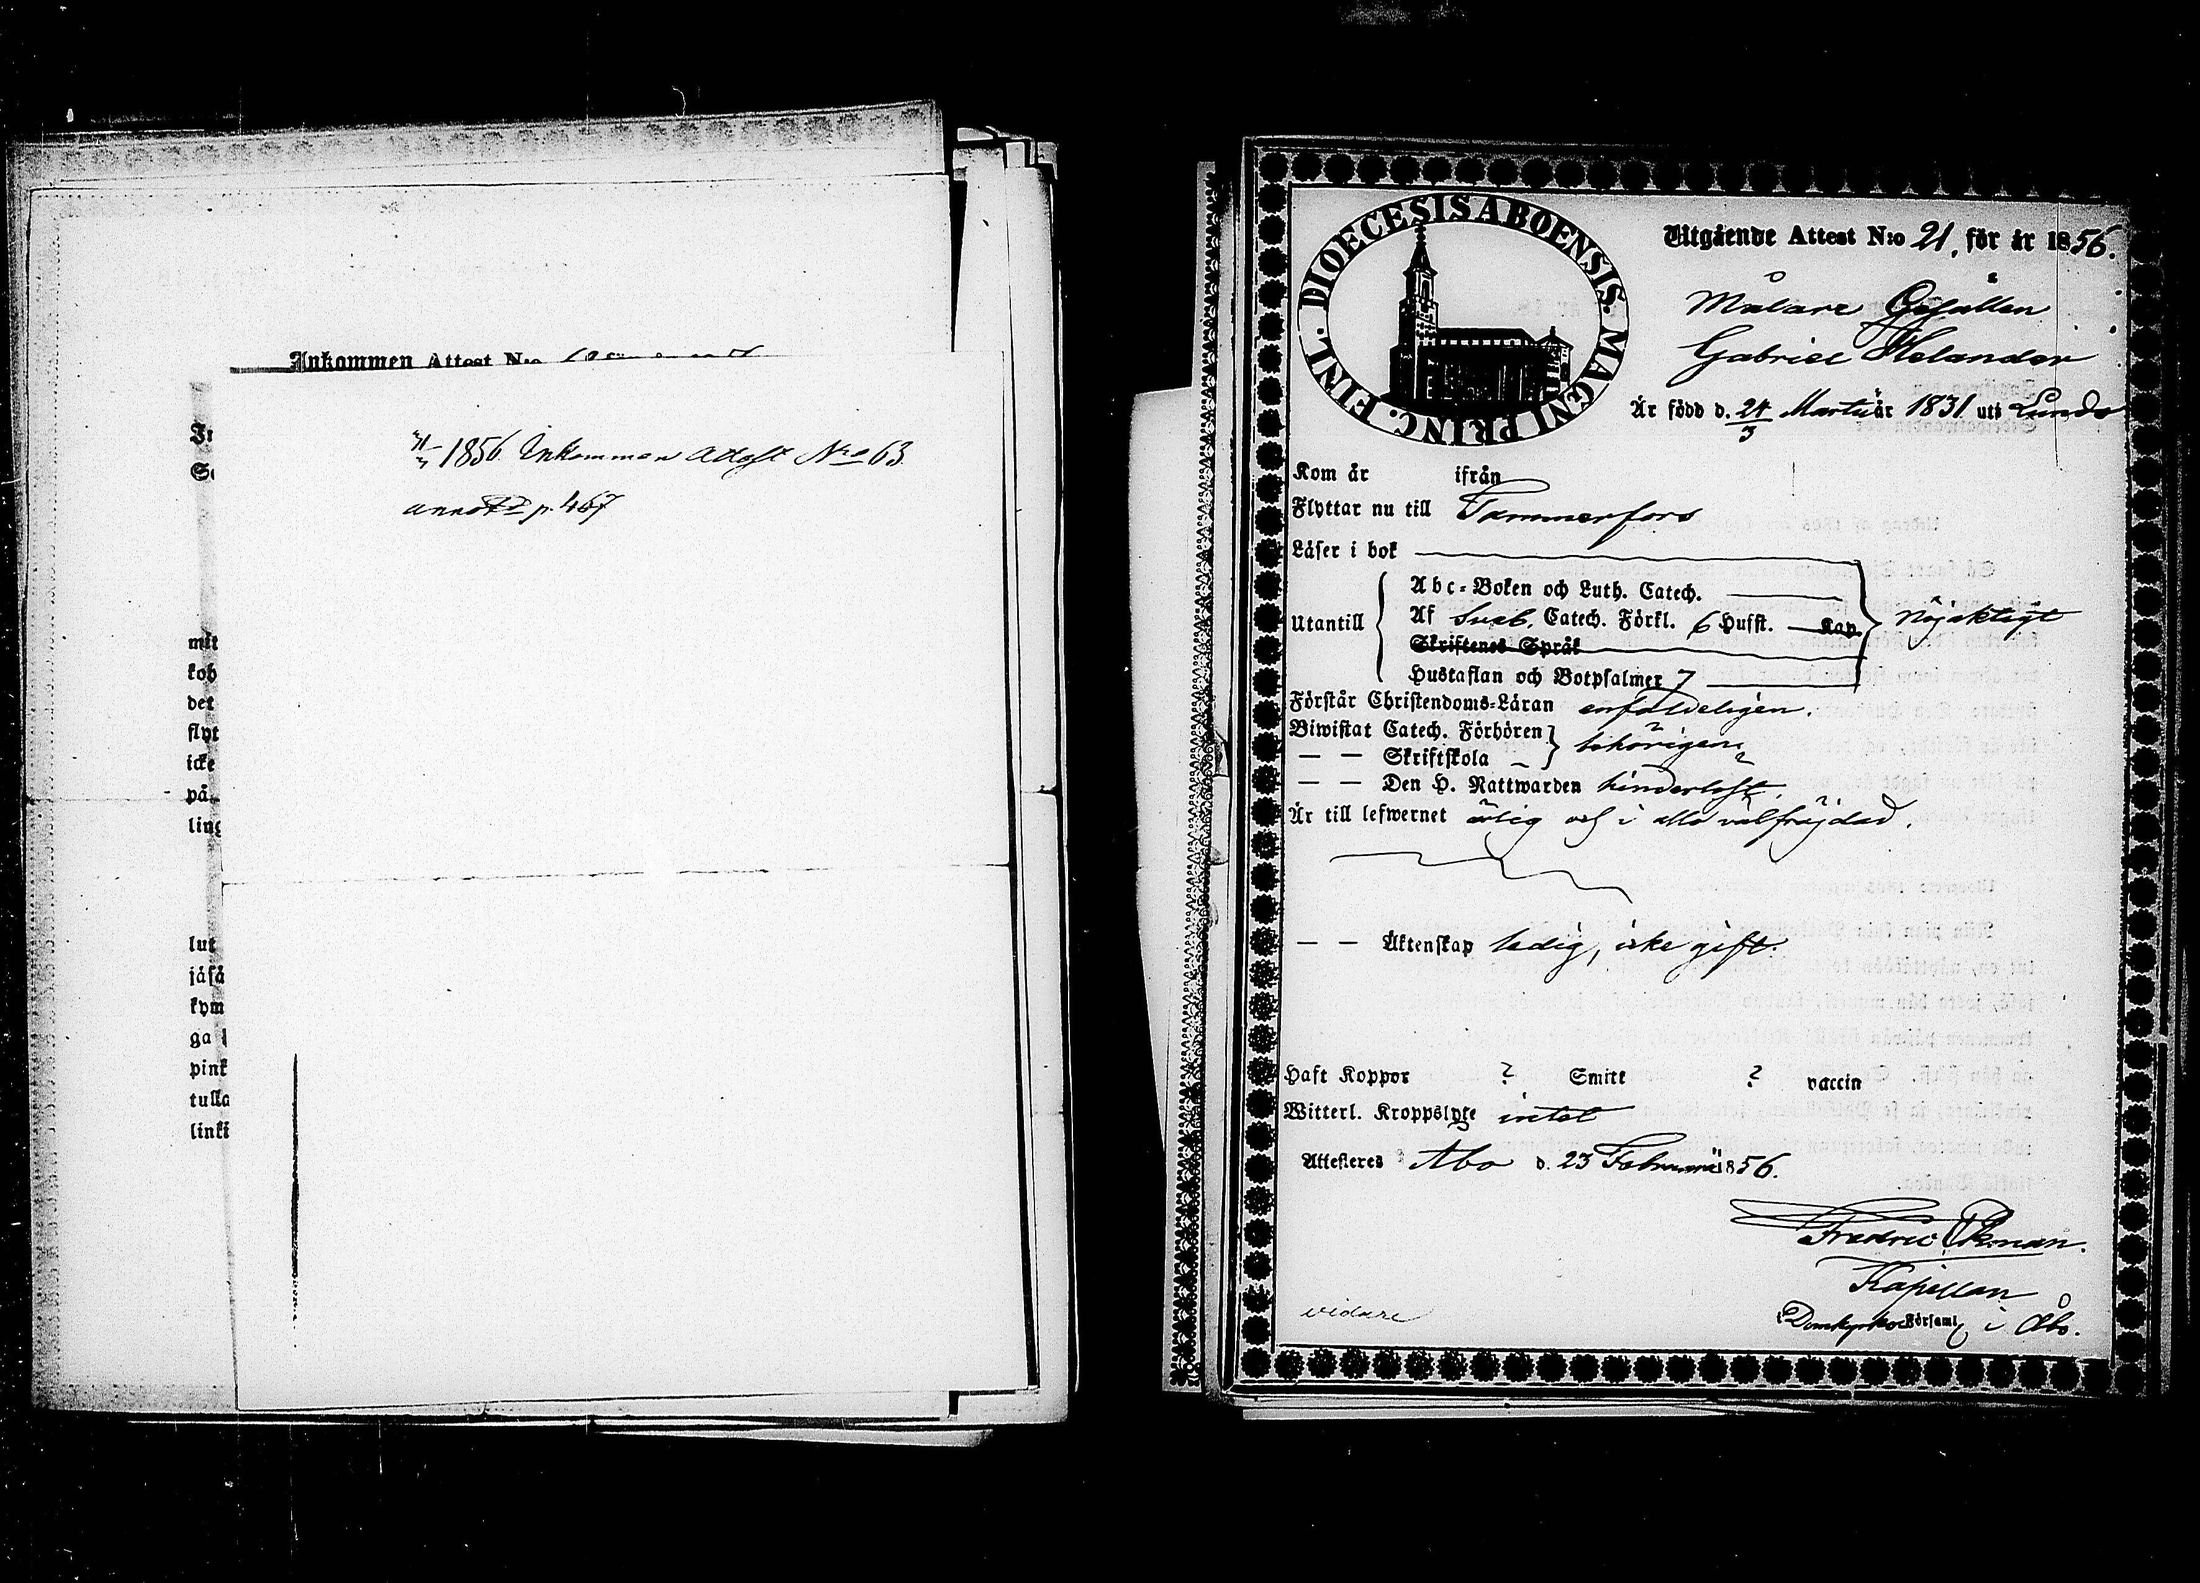 Inkommen Attest N:o
1856 Inkommen Attest Nro 63
annot p. 467
mit
kob
det
flyt
icke
på
ling
lut
jäså
kym
ga
pink
tulla
linki
DIOECESIS ABOENSIS. MAGNI PRINC. FINL.
Utgående Attest N:o 21. för år 1856.
Målare Gesällen
Gabriel Helander
Är född d. 24/3 Martii år 1831 uti Lundo
Kom år ifrån
Flyttar nu till Tammerfors
Läser i bok
Abc-Boken och Luth. Catech.
Utantill Af Sveb. Catech. Förkl. 6 Hufst. Kap. nöjaktigt
Skriftenes Språk
Hustaflan och Botpsalmer 7
Förstår Christendoms-Läran enfaldeligen.
Biwistat Catech. Förhören
— — Skriftskola behörigen
— — Den H. Nattwarden hinderlöst.
Är till lefwernet ärlig och i alla välfrejdad.
— — Äktenskap ledig, icke gift.
Haft Koppor ? Smitt ? vaccin
Witterl. Kroppslyte intet
Attesteres Åbo d. 23 Februarii 1856.
Fredric Ekman.
Kapellan
i Domkyrko Församl i Åbo.
vidare